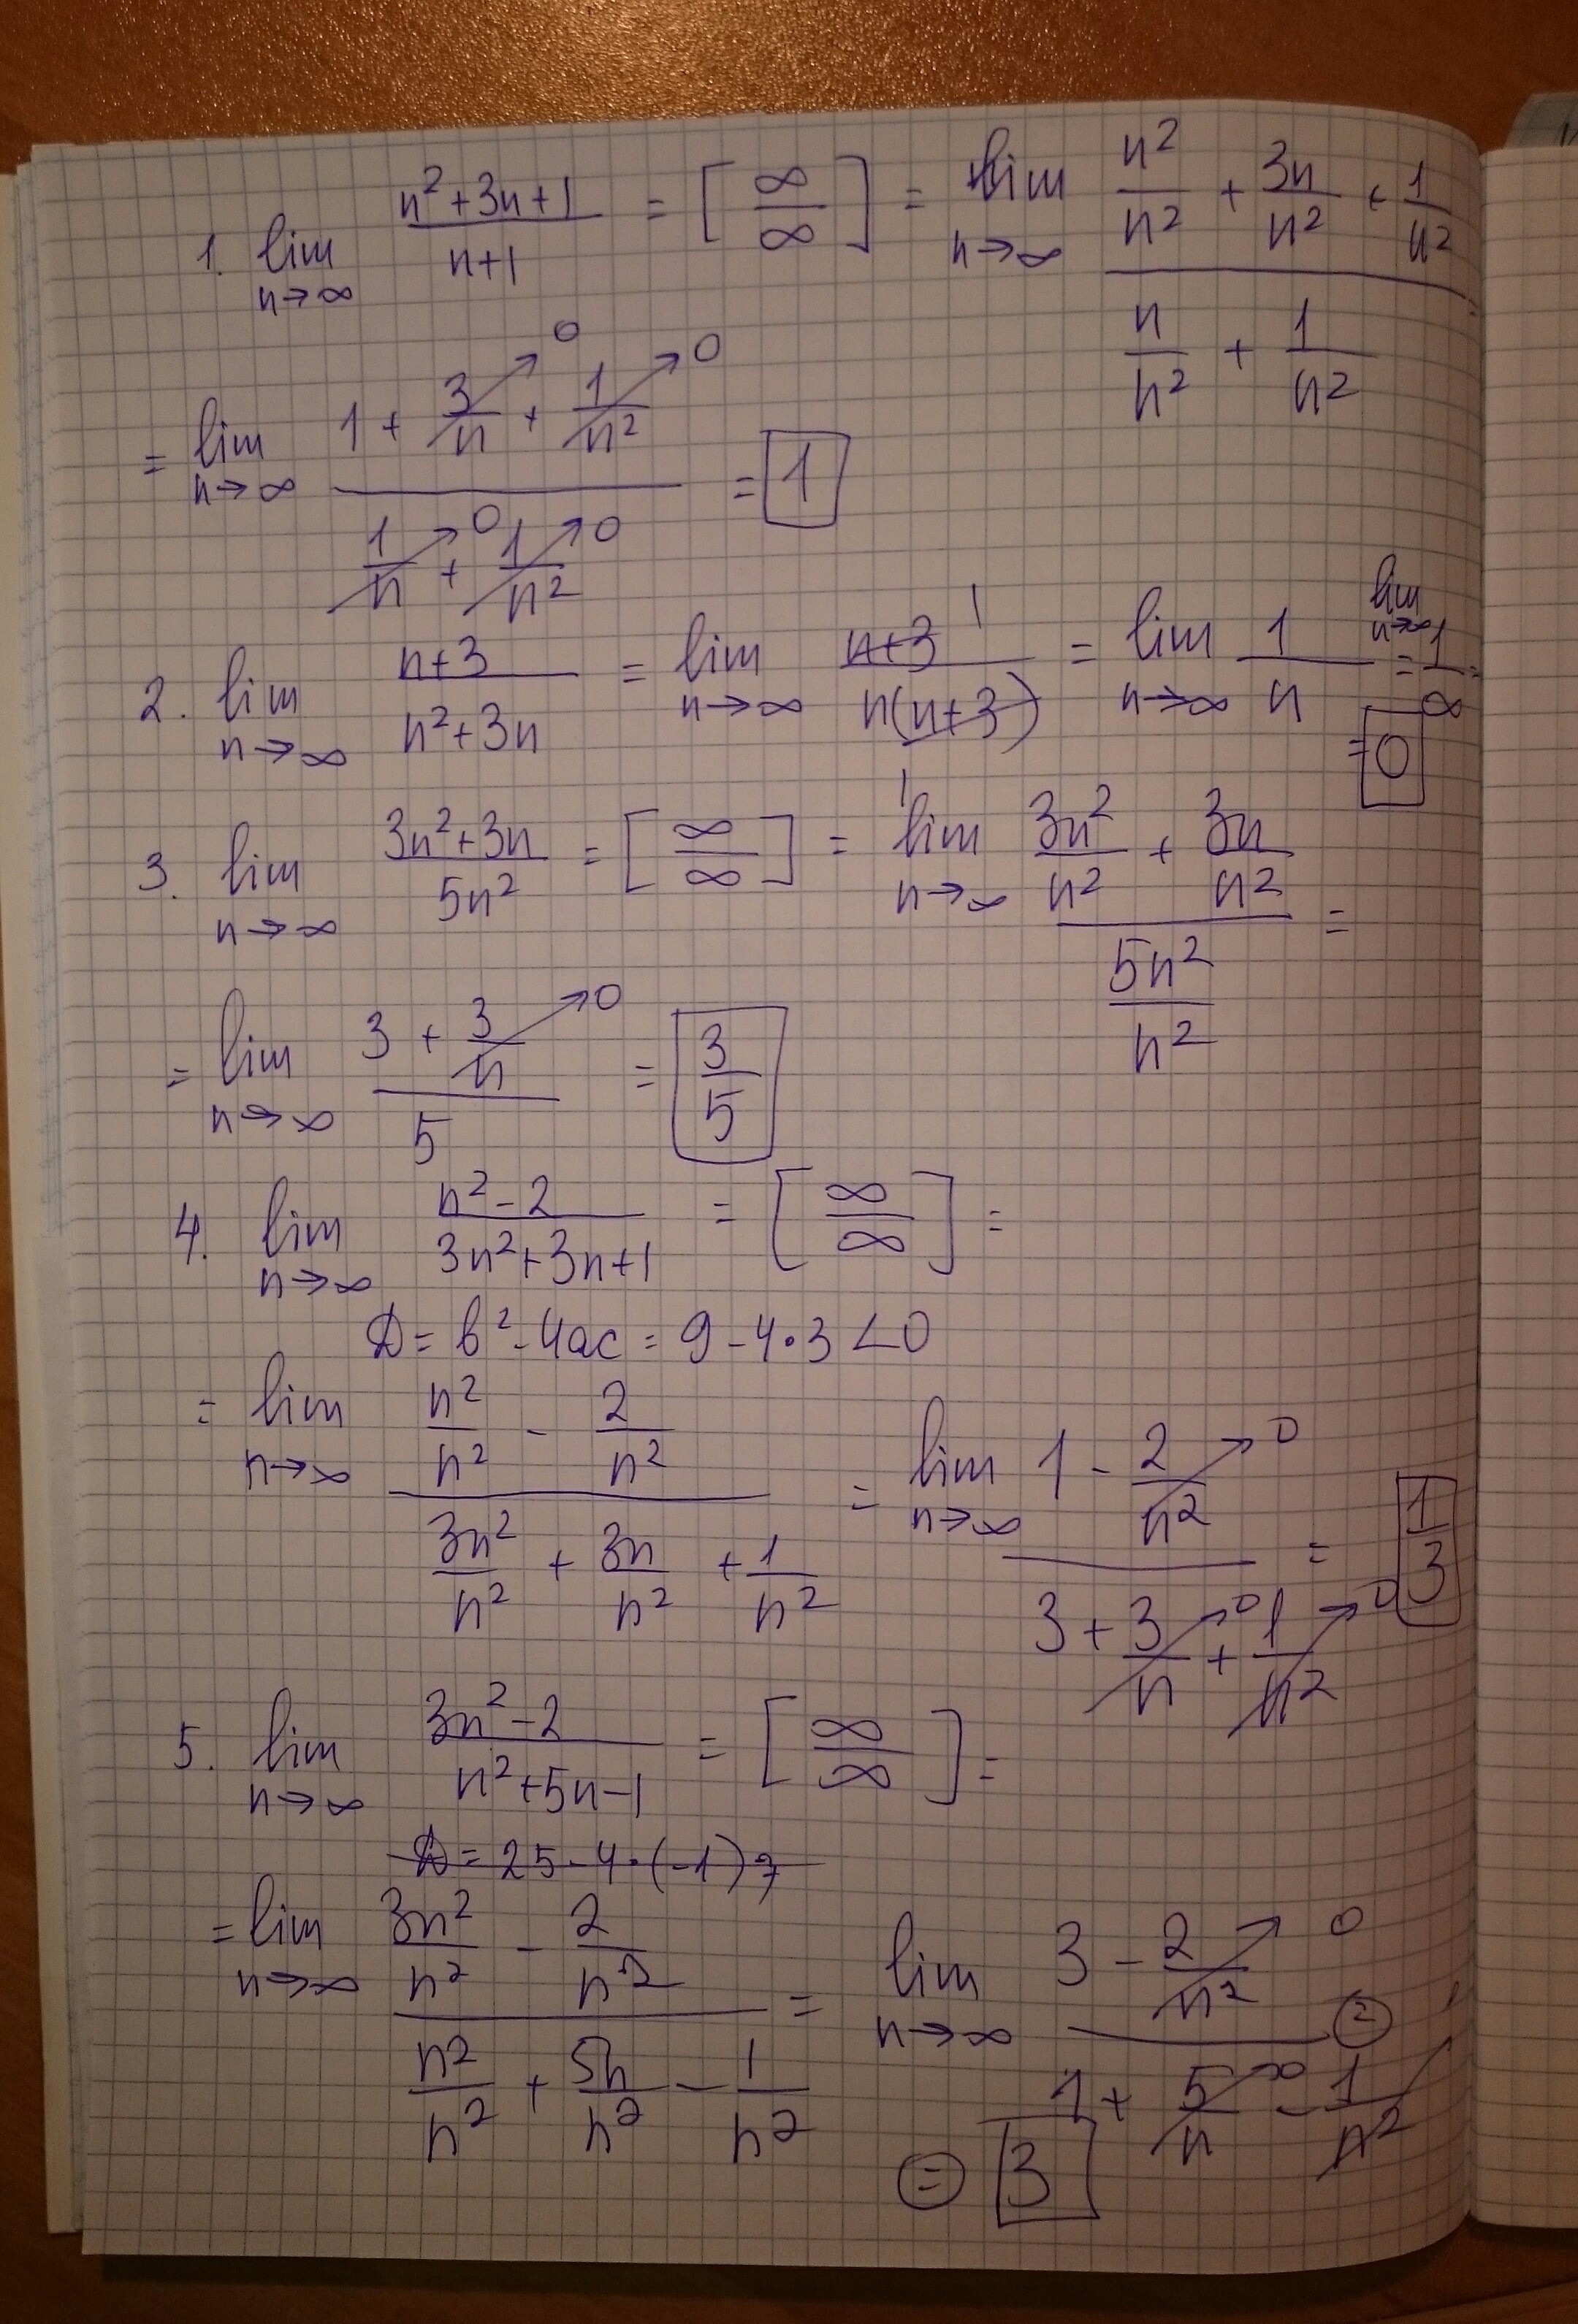 1. lim n→∞ (n²+3n+1)/(n+1) = [∞/∞] = lim n→∞ (n²/n² + 3n/n² + 1/n²)/(n/n² + 1/n²)
= lim n→∞ (1 + 3/n→0 + 1/n²→0)/(1/n→0 + 1/n²→0) = 1
2. lim n→∞ (n+3)/(n²+3n) = lim n→∞ (n+3) 1/(n(n+3)) 1 = lim n→∞ 1/n = lim n→∞ 1/∞ =
= 0
3. lim n→∞ (3n²+3n)/(5n²) = [∞/∞] = lim n→∞ (3n²/n² + 3n/n²)/(5n²/n²) =
= lim n→∞ (3 + 3/n→0)/5 = 3/5
4. lim n→∞ (n²-2)/(3n²+3n+1) = [∞/∞] =
D = b²-4ac = 9-4•3 <0
= lim n→∞ (n²/n² - 2/n²)/(3n²/n² + 3n/n² + 1/n²) = lim n→∞ (1 - 2/n²→0)/(3 + 3/n→0 + 1/n²→0) = 1/3
5. lim n→∞ (3n²-2)/(n²+5n-1) = [∞/∞] =
D = 25-4•(-1)
= lim n→∞ (3n²/n² - 2/n²)/(n²/n² + 5n/n² - 1/n²) = lim n→∞ (3 - 2/n²→0)/(1 + 5/n→0 - 1/n²) =
= 3